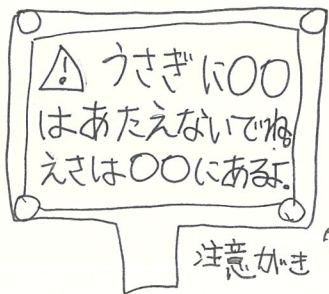 ⚠ うさぎに○○
はあたえないでね。
えさは○○にあるよ。
注意がき